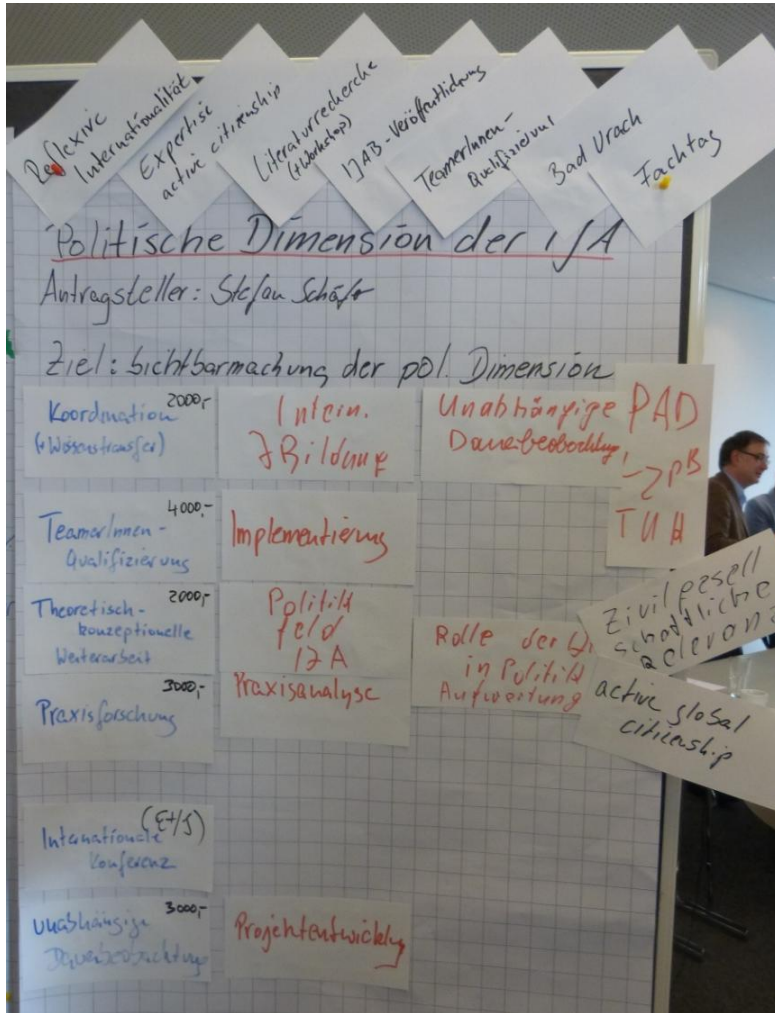 Reflexive
Internationalität
Expertise
active citizenship
Literaturrecherche
(+Workshop)
IJAB-Veröffentlichung
TeamerInnen-
Qualifizierung
Bad Urach
Fachtag
Politische Dimension der IJA
Antragsteller: Stefan Schäfer
Ziel: Sichtbarmachung der pol. Dimension
Koordination 2000,-
(+Wissenstransfer)
Intern.
JBildung
Unabhängige
Dauerbeobachtung
PAD
->pB
TUH
4000,-
TeamerInnen-
Qualifizierung
Implementierung
Theoretisch- 2000,-
konzeptionelle
Weiterarbeit
Politik
feld
IJA
Rolle der
in Politik
Aufwertung
Zivilgesell
schaftliche
Relevanz
3000,-
Praxisforschung
Praxisanalyse
active global
citizenship
(E+/J)
Internationale
Konferenz
3000,-
unabhängige
Dauerbeobachtung
Projektentwicklung